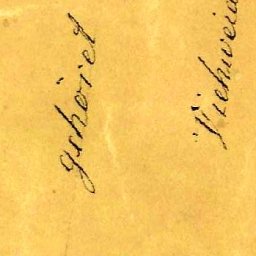 gehöret
Viehweid